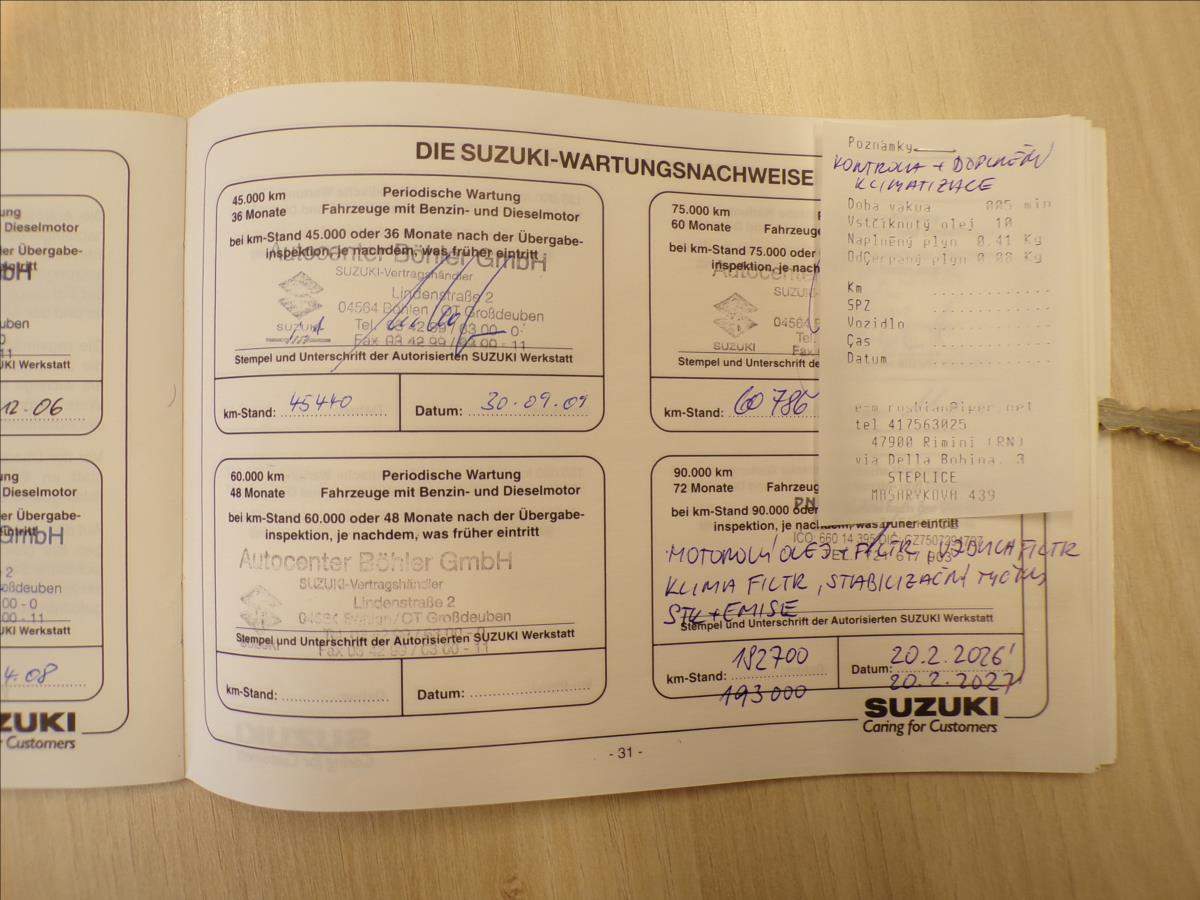 ung
Dieselmotor
er Übergabe-
intritt
bH
uben
0
11
UKI Werkstatt
12.06
ung
Dieselmotor
er Übergabe-
GmbH
e 2
oßdeuben
00 - 0
00 - 11
UKI Werkstatt
4.08
SUZUKI
Customers
DIE SUZUKI-WARTUNGSNACHWEISE
45.000 km
36 Monate
Periodische Wartung
Fahrzeuge mit Benzin- und Dieselmotor
bei km-Stand 45.000 oder 36 Monate nach der Übergabe-
inspektion, je nachdem, was früher eintritt
Autocenter Böhler GmbH
SUZUKI-Vertragshändler
Lindenstraße 2
04564 Böhlen / OT Großdeuben
Tel. 03 42 99 / 63 00 - 0
Fax 03 42 99 / 63 00 - 11
SUZUKI
Stempel und Unterschrift der Autorisierten SUZUKI Werkstatt
km-Stand: 45440
Datum: 30.09.09
75.000 km
60 Monate
Fahrzeuge
bei km-Stand 75.000 oder
inspektion, je nach
Autocente
SUZUKI
04564
Fax
SUZUKI
Stempel und Unterschrift der
km-Stand: 60 786
60.000 km
48 Monate
Periodische Wartung
Fahrzeuge mit Benzin- und Dieselmotor
bei km-Stand 60.000 oder 48 Monate nach der Übergabe-
inspektion, je nachdem, was früher eintritt
Autocenter Böhler GmbH
SUZUKI-Vertragshändler
Lindenstraße 2
04564 Böhlen / OT Großdeuben
Fax 03 42 99 / 63 00 - 11
SUZUKI
Stempel und Unterschrift der Autorisierten SUZUKI Werkstatt
km-Stand:
Datum:
90.000 km
72 Monate
Fahrzeug
bei km-Stand 90.000 oder
inspektion, je nachdem, was früher eintritt
MOTOROVÝ OLEJ + FILTR, VZDUCH FILTR
KLIMA FILTR, STABILIZAČNÍ TYČKY
STK + EMISE
Stempel und Unterschrift der Autorisierten SUZUKI Werkstatt
km-Stand: 182700
193000
Datum: 20.2.2026
20.2.2027
SUZUKI
Caring for Customers
- 31 -
Poznámky
KONTROLA + DOPLNĚNÍ
KLIMATIZACE
Doba vakua 005 min
Vstřiknutý olej 10
Naplněný plyn 0.41 Kg
Odčerpaný plyn 0.08 Kg
Km
SPZ
Vozidlo
Čas
Datum
tel 417563025
47900 Rimini (RN)
via Della Bobina, 3
STEPLICE
MASARYKOVA 439